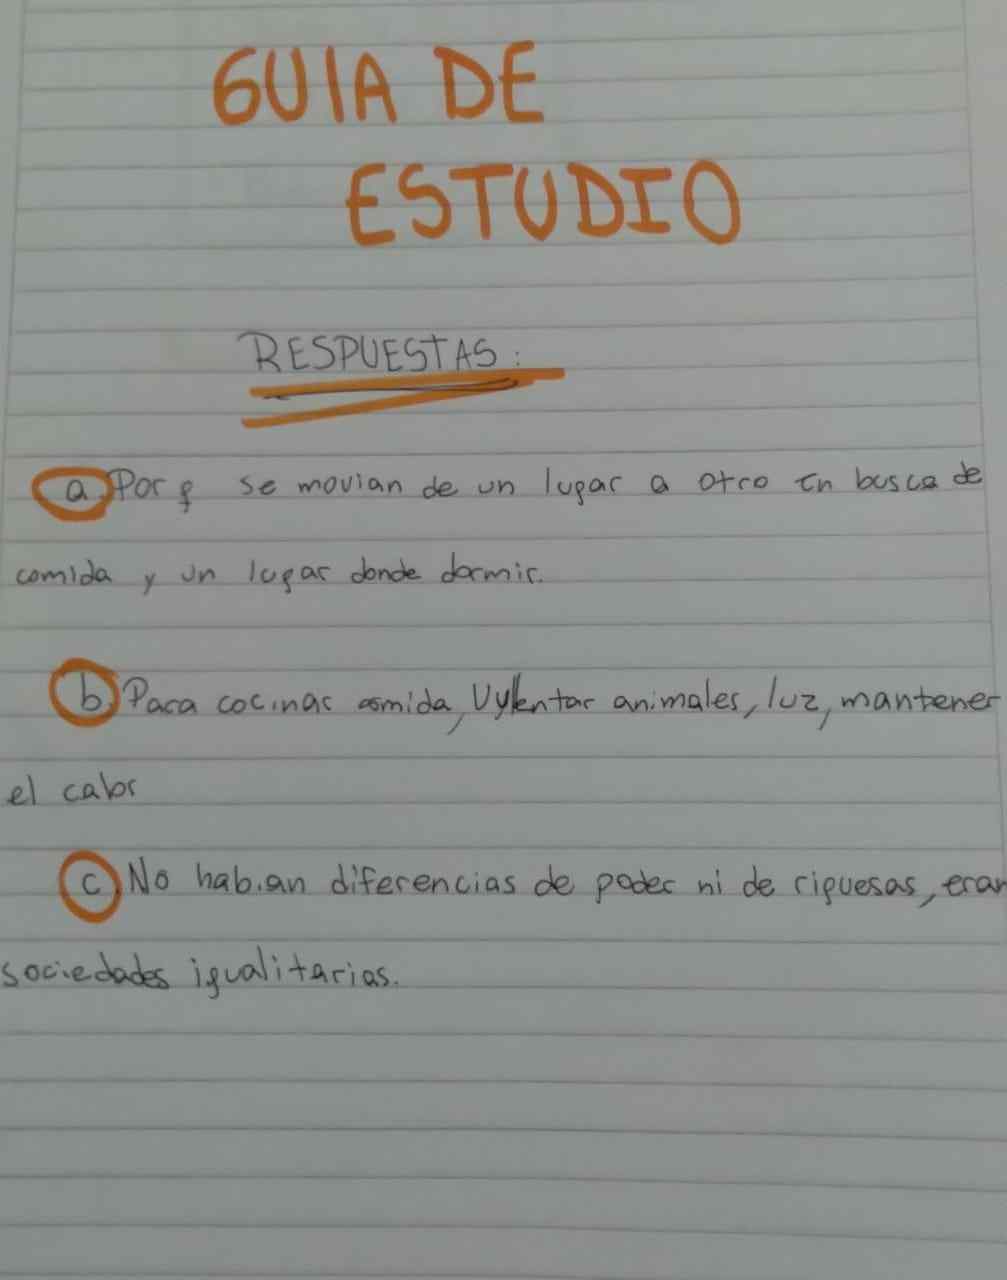 GUIA DE
ESTUDIO
RESPUESTAS:
a) Por q se movian de un lugar a otro en busca de
comida y un lugar donde dormir.
b) Para cocinar comida, animales, luz, mantener
el calor
c) No habian diferencias de poder ni de riquesas, eran
sociedades igualitarias.